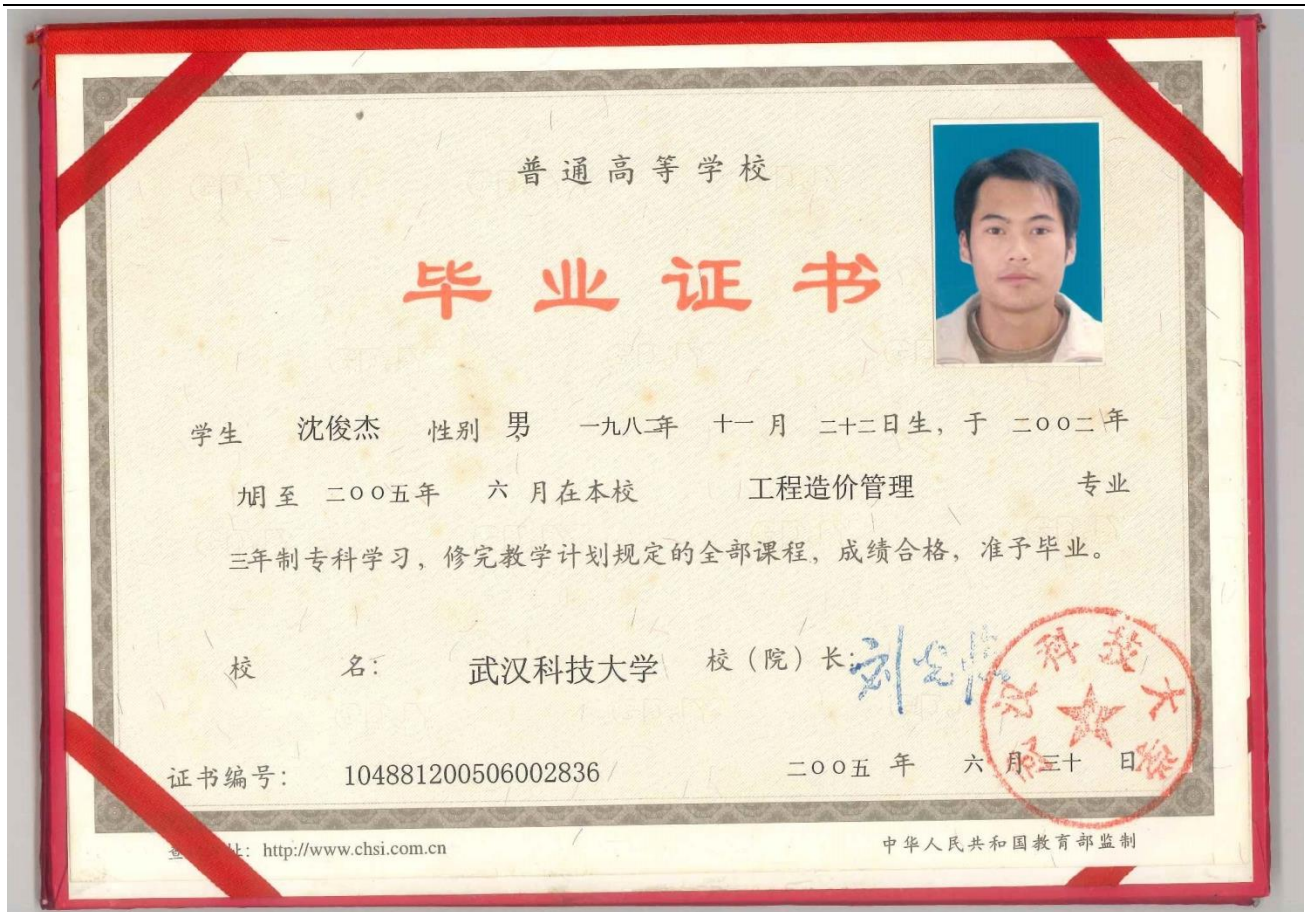 普通高等学校
毕业证书
学生 沈俊杰 性别 男 一九八二年 十一月 二十二日生，于 二〇〇二年
九月至 二〇〇五年 六 月在本校 工程造价管理 专业
三年制专科学习，修完教学计划规定的全部课程，成绩合格，准予毕业。
校 名： 武汉科技大学 校（院）长：
武汉科技大学
证书编号： 104881200506002836 二〇〇五 年 六 月 三十 日
址：http://www.chsi.com.cn 中华人民共和国教育部监制